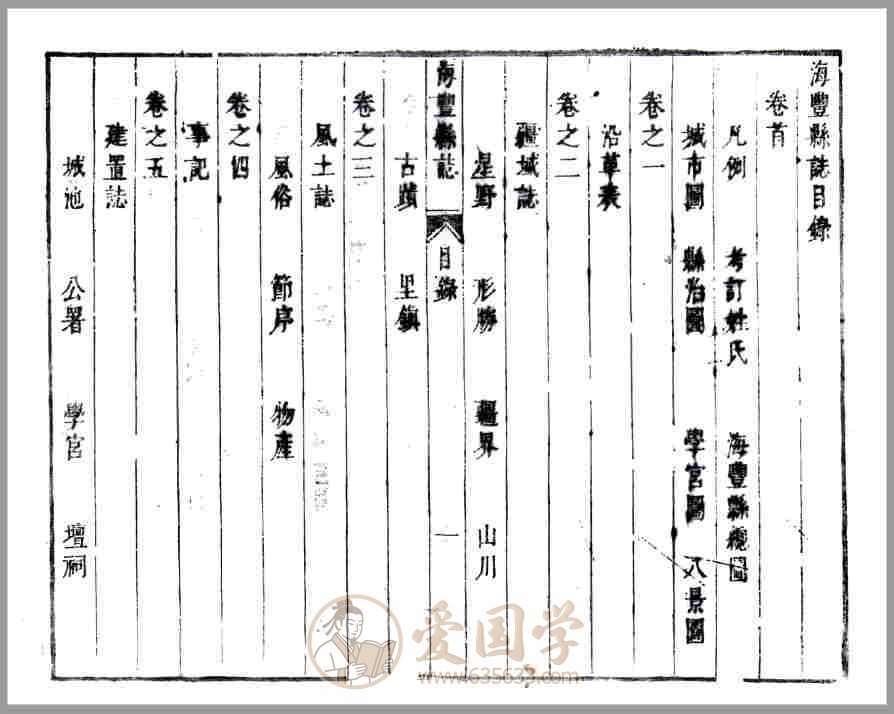 海豐縣誌目錄
卷首
凡例　考訂姓氏　海豐縣總圖
城市圖　縣治圖　學宮圖　八景圖
卷之一
沿革表
卷之二
疆域誌
星野　形勝　疆界　山川
海豐縣誌　目錄　一
古蹟　里鎮
卷之三
風土誌
風俗　節序　物產
卷之四
事記
卷之五
建置誌
城池　公署　學宮　壇祠
爱国学
www.635633.com